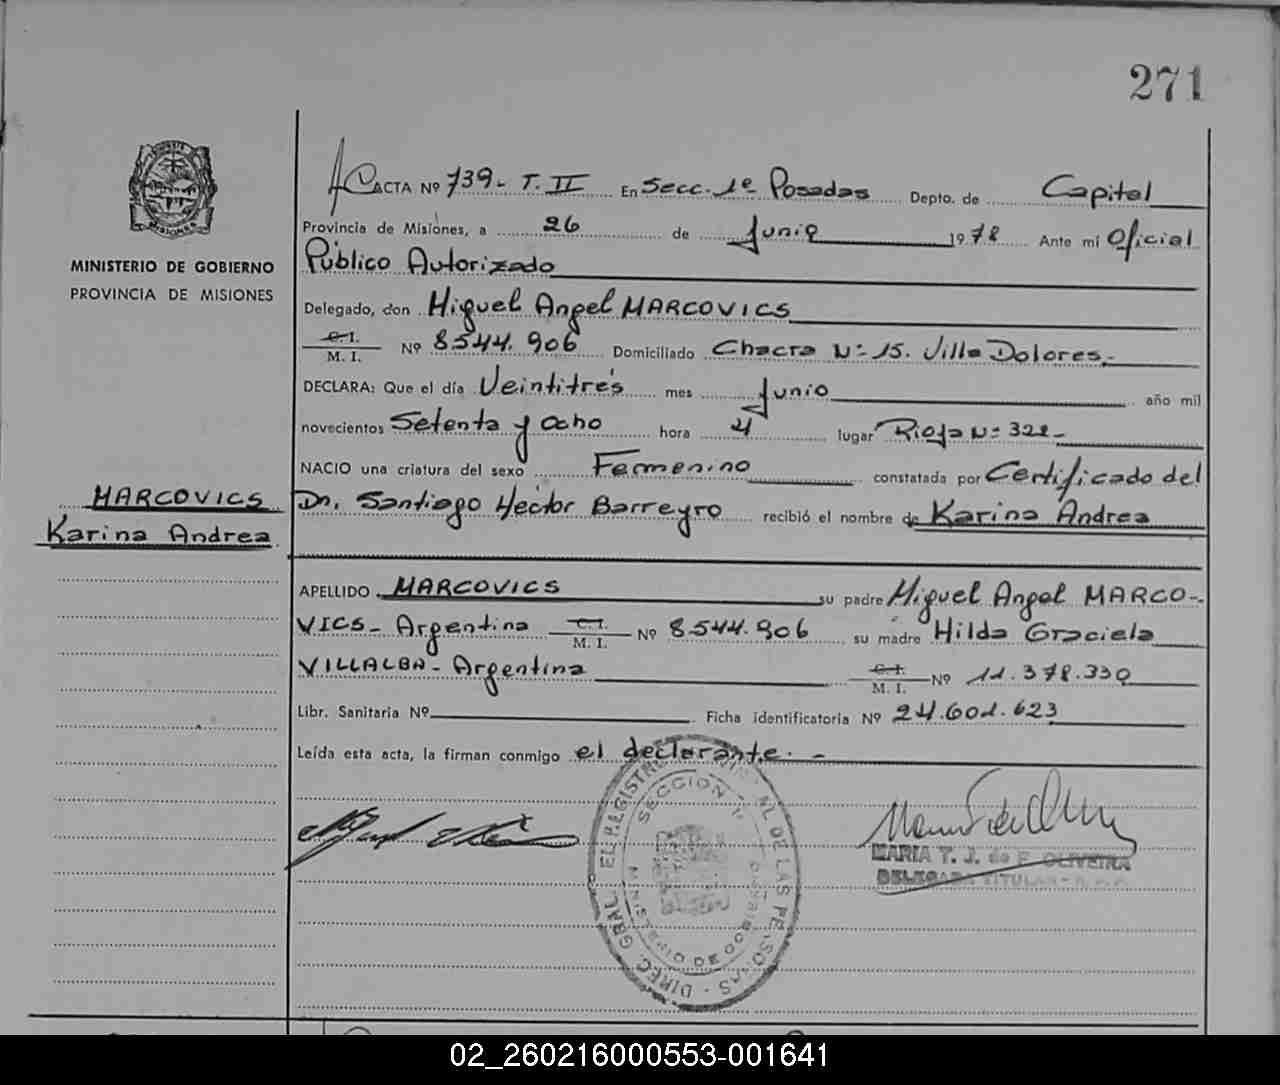 271
ACTA Nº 739- T. II En Secc. 1ª Posadas Depto. de Capital
Provincia de Misiones, a 26 de Junio 1978 Ante mí Oficial
MINISTERIO DE GOBIERNO
PROVINCIA DE MISIONES
Público Autorizado
Delegado, don Miguel Angel MARCOVICS
C. I.
M. I. Nº 8544.906 Domiciliado Chacra Nº 15. Villa Dolores.
DECLARA: Que el día Veintitrés mes Junio año mil
novecientos Setenta y Ocho hora 4 lugar Rioja Nº 322-
NACIO una criatura del sexo Femenino constatada por Certificado del
MARCOVICS
Karina Andrea
Dr. Santiago Hector Barreyro recibió el nombre de Karina Andrea
APELLIDO MARCOVICS su padre Miguel Angel MARCO-
VICS- Argentina C. I.
M. I. Nº 8544.906 su madre Hilda Graciela
VILLALBA- Argentina C. I.
M. I. Nº 11.378.330
Libr. Sanitaria Nº Ficha identificatoria Nº 24.601.623
Leída esta acta, la firman conmigo el declarante. -
DIREC. GRAL. EL REGISTRO DE LAS PERSONAS
SECCION 1ª
MARIA T. J. de F. OLIVEIRA
DELEGADA TITULAR
02_260216000553-001641